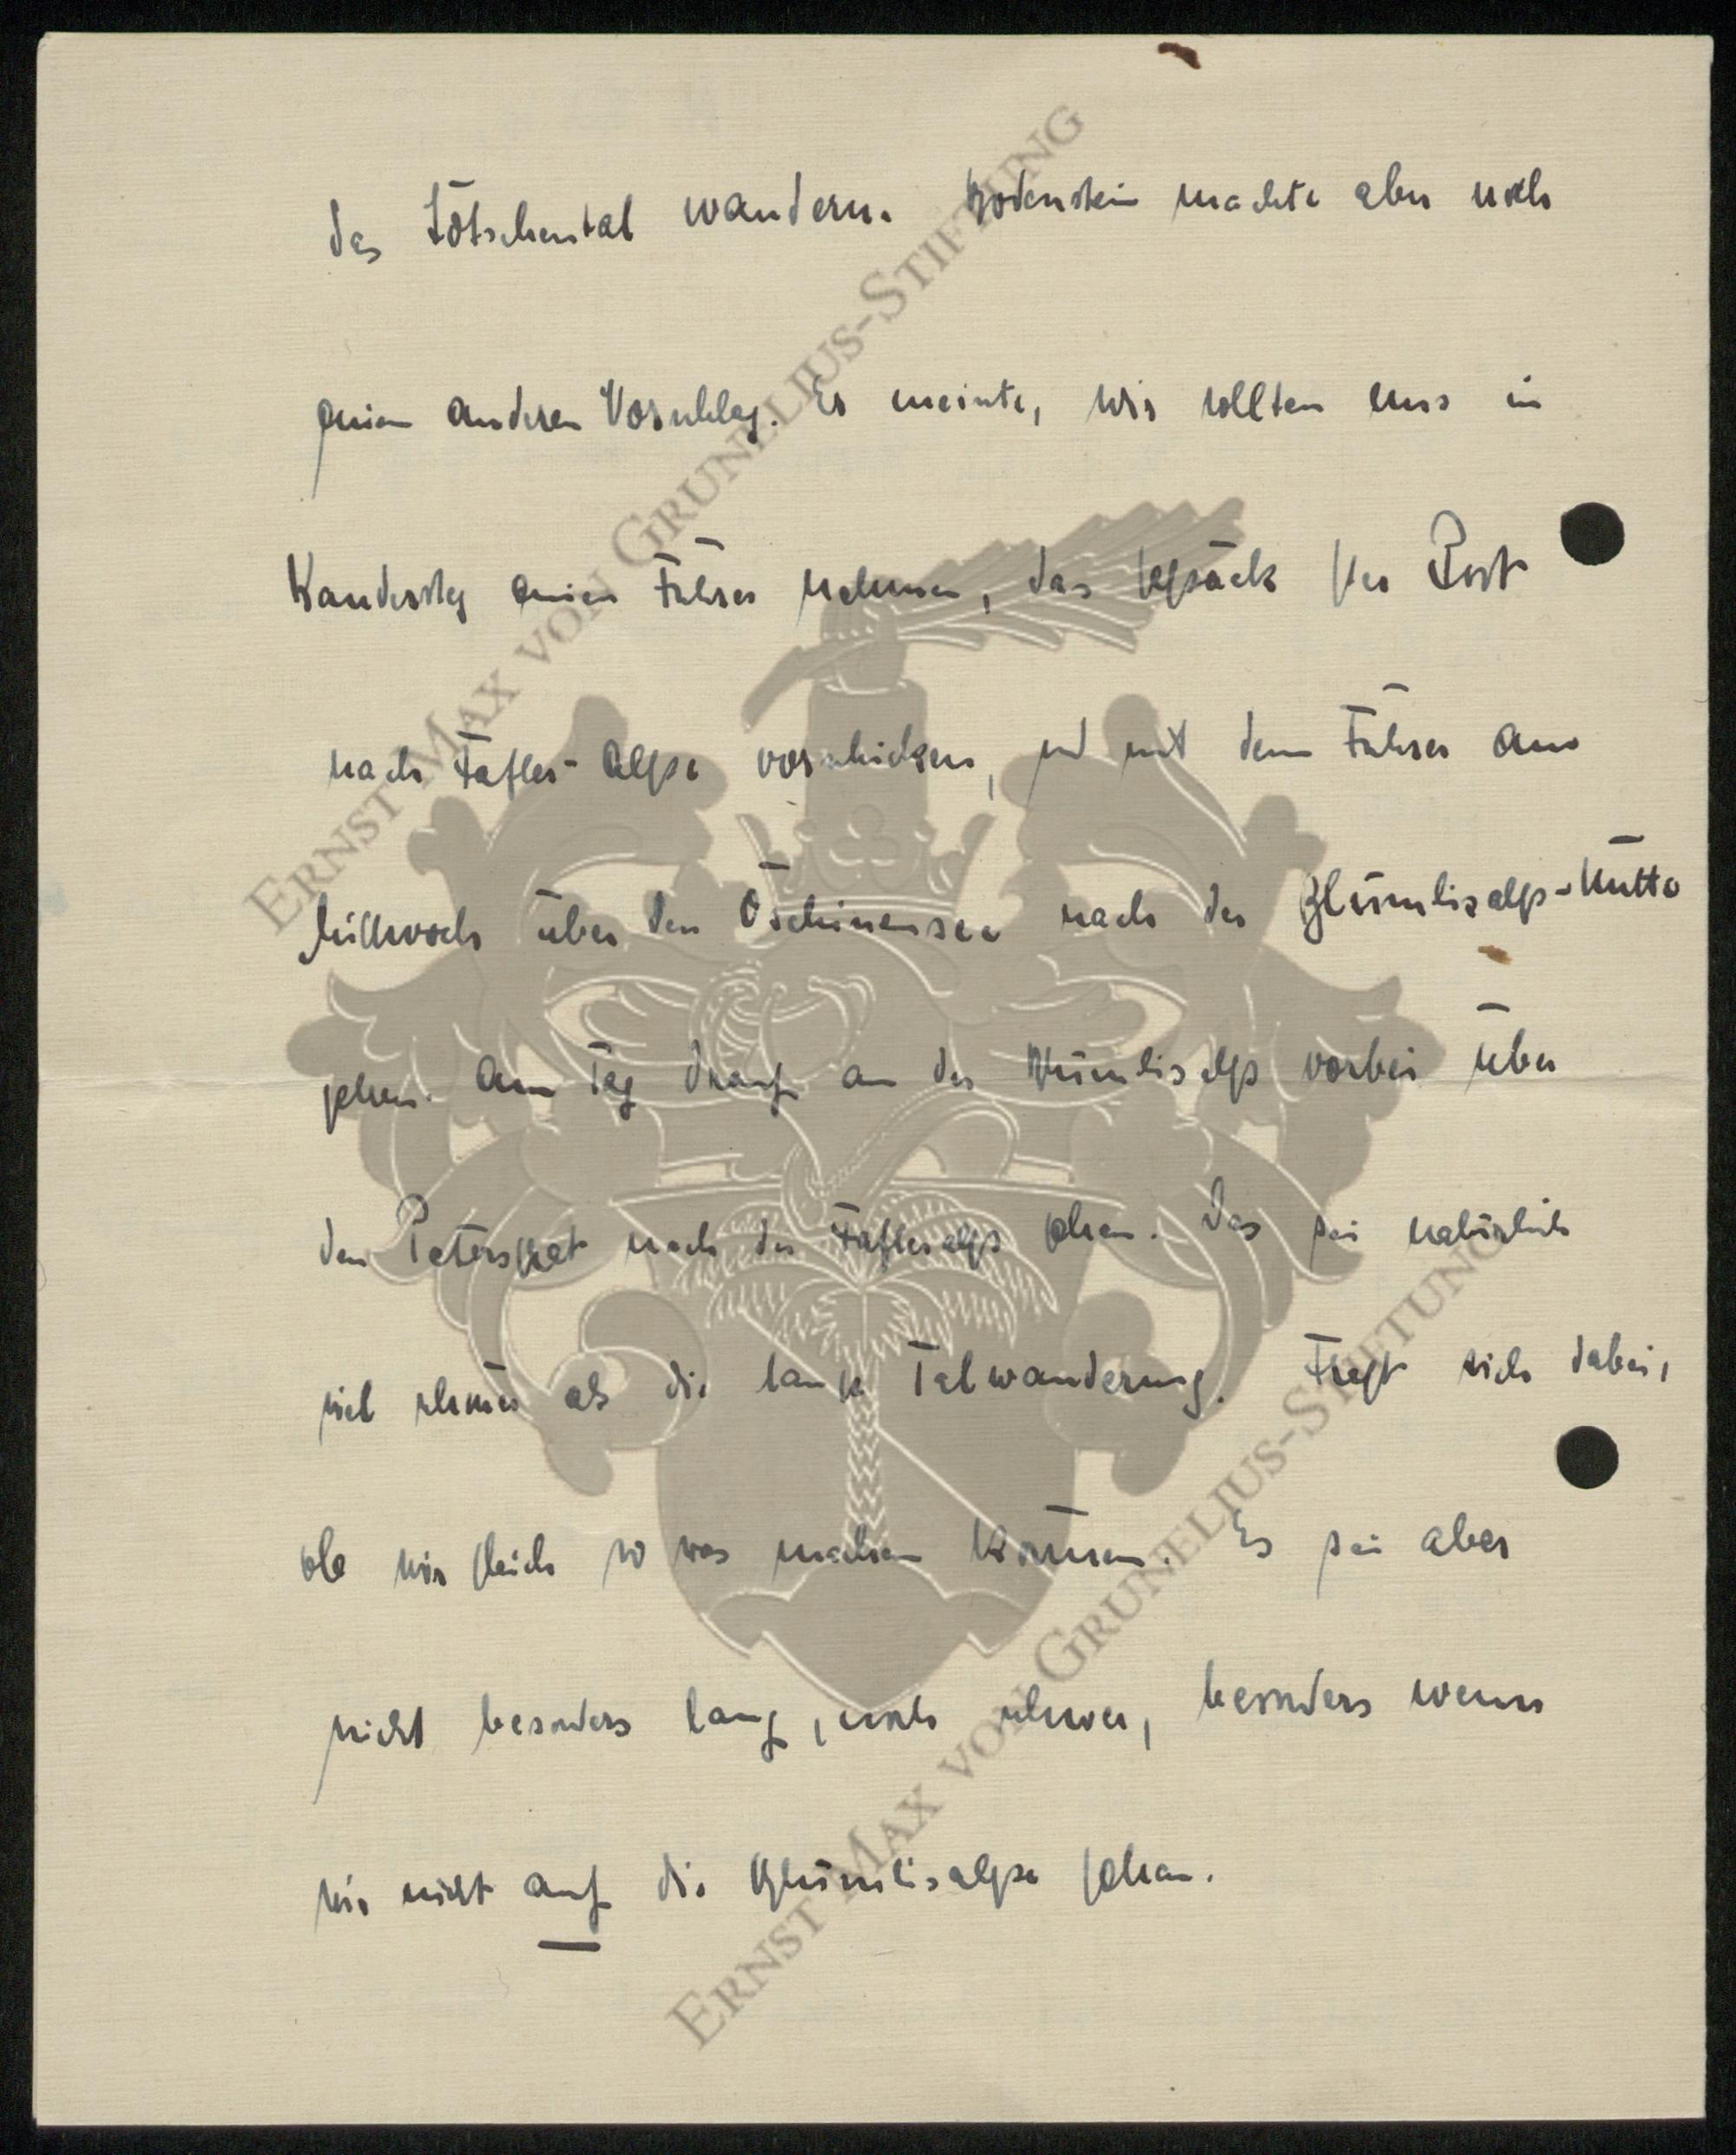 das Lötschental wandern. Bodenstein machte aber noch
einen anderen Vorschlag. Er meinte, wir sollten uns in
Kandersteg einen Führer nehmen, das Gepäck per Post
nach Fafler-Alpe vorschicken, und mit dem Führer am
Mittwoch über den Öschinensee nach der Blümlisalp-Hütte
gehen. Am Tag drauf an der Blümlisalp vorbei über
den Petersgrat nach der Fafleralp gehen. Das sei natürlich
viel schöner als die lange Talwanderung. Fragt sich dabei,
ob wir gleich so was machen können. Es sei aber
nicht besonders lang, noch schwer, besonders wenn
wir nicht auf die Blümlisalpe gehen.
ERNST MAX VON GRUNELIUS-STIFTUNG
ERNST MAX VON GRUNELIUS-STIFTUNG